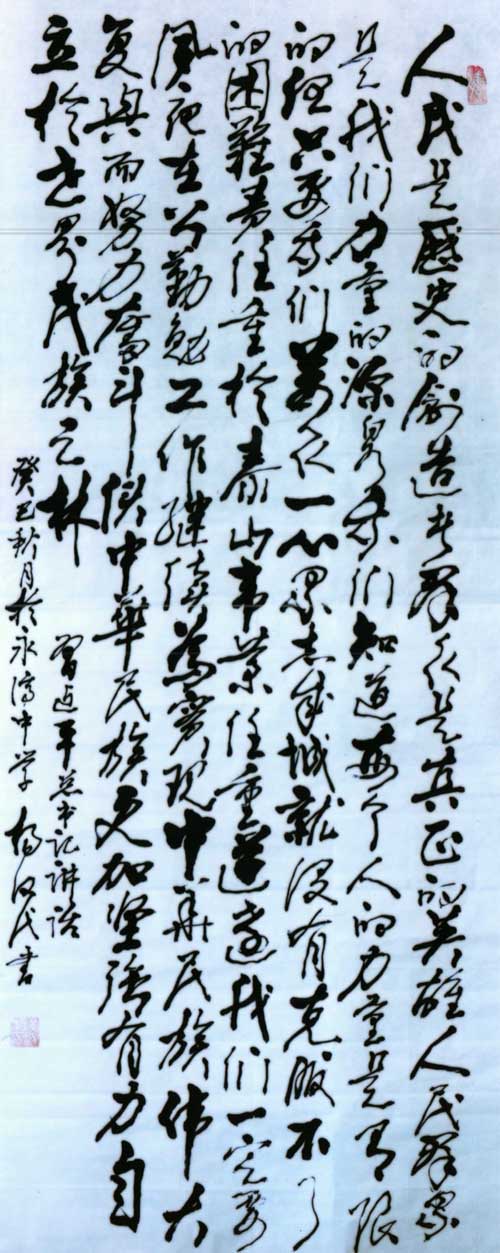 人民是歷史的創造者群众是真正的英雄人民群眾
是我们力量的源泉我们知道每个人的力量是有限
的但只要我们萬众一心眾志成城就没有克服不了
的困難責任重於泰山事業任重道遠我们一定要
夙夜在公勤勉工作继续為實现中華民族伟大
复興而努力奮斗使中華民族更加坚强有力自
立於世界民族之林
習近平总书记讲话
癸巳秋月於永中学 杨书